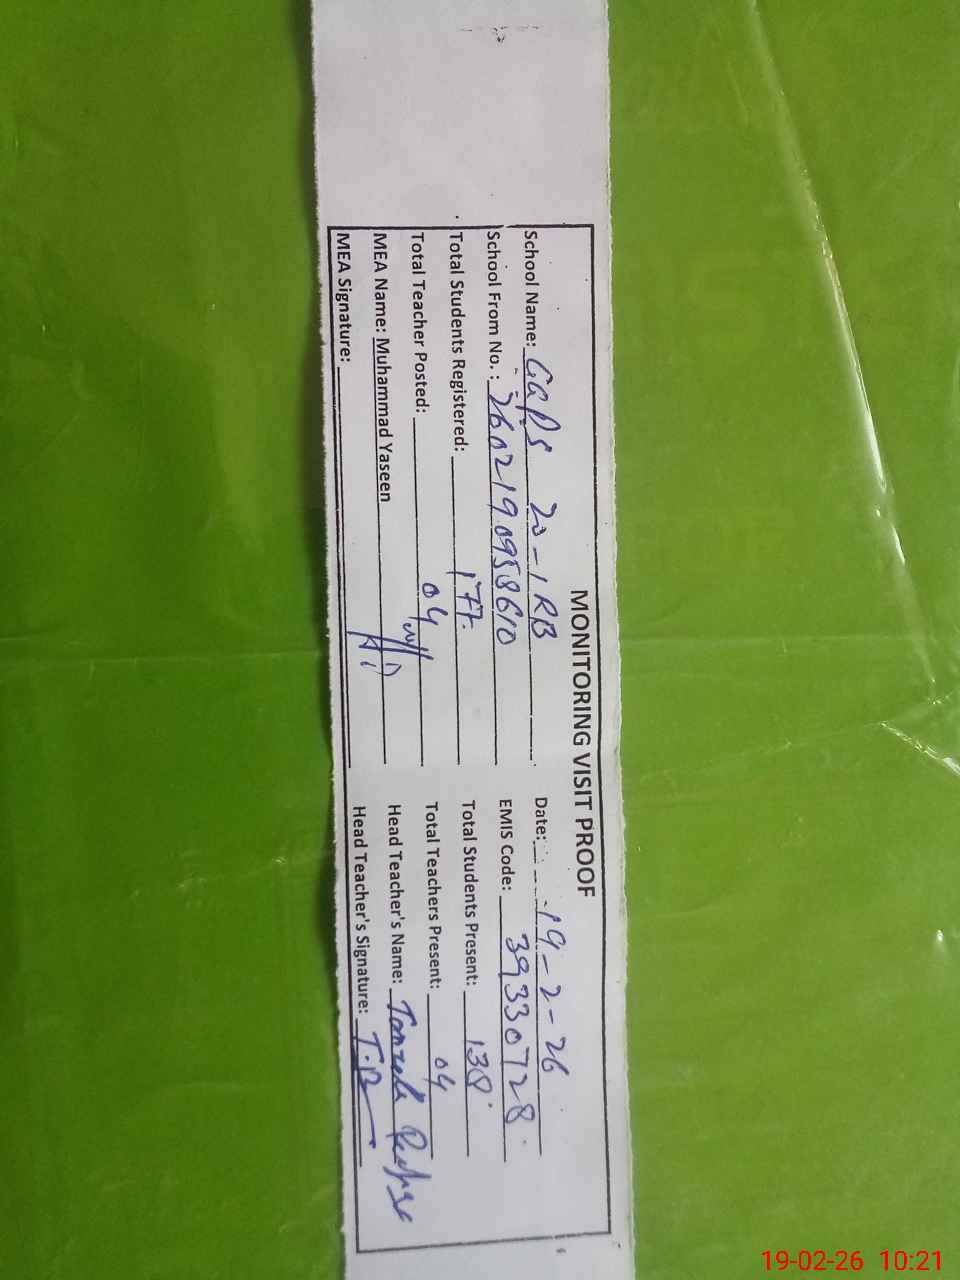 MONITORING VISIT PROOF
School Name: GGPS 20-1RB Date: 19-2-26
School From No.: 260219095860 EMIS Code: 39330728
Total Students Registered: 177 Total Students Present: 138
Total Teacher Posted: 04 Total Teachers Present: 04
MEA Name: Muhammad Yaseen Head Teacher's Name:
MEA Signature: Head Teacher's Signature: T.B
19-02-26 10:21